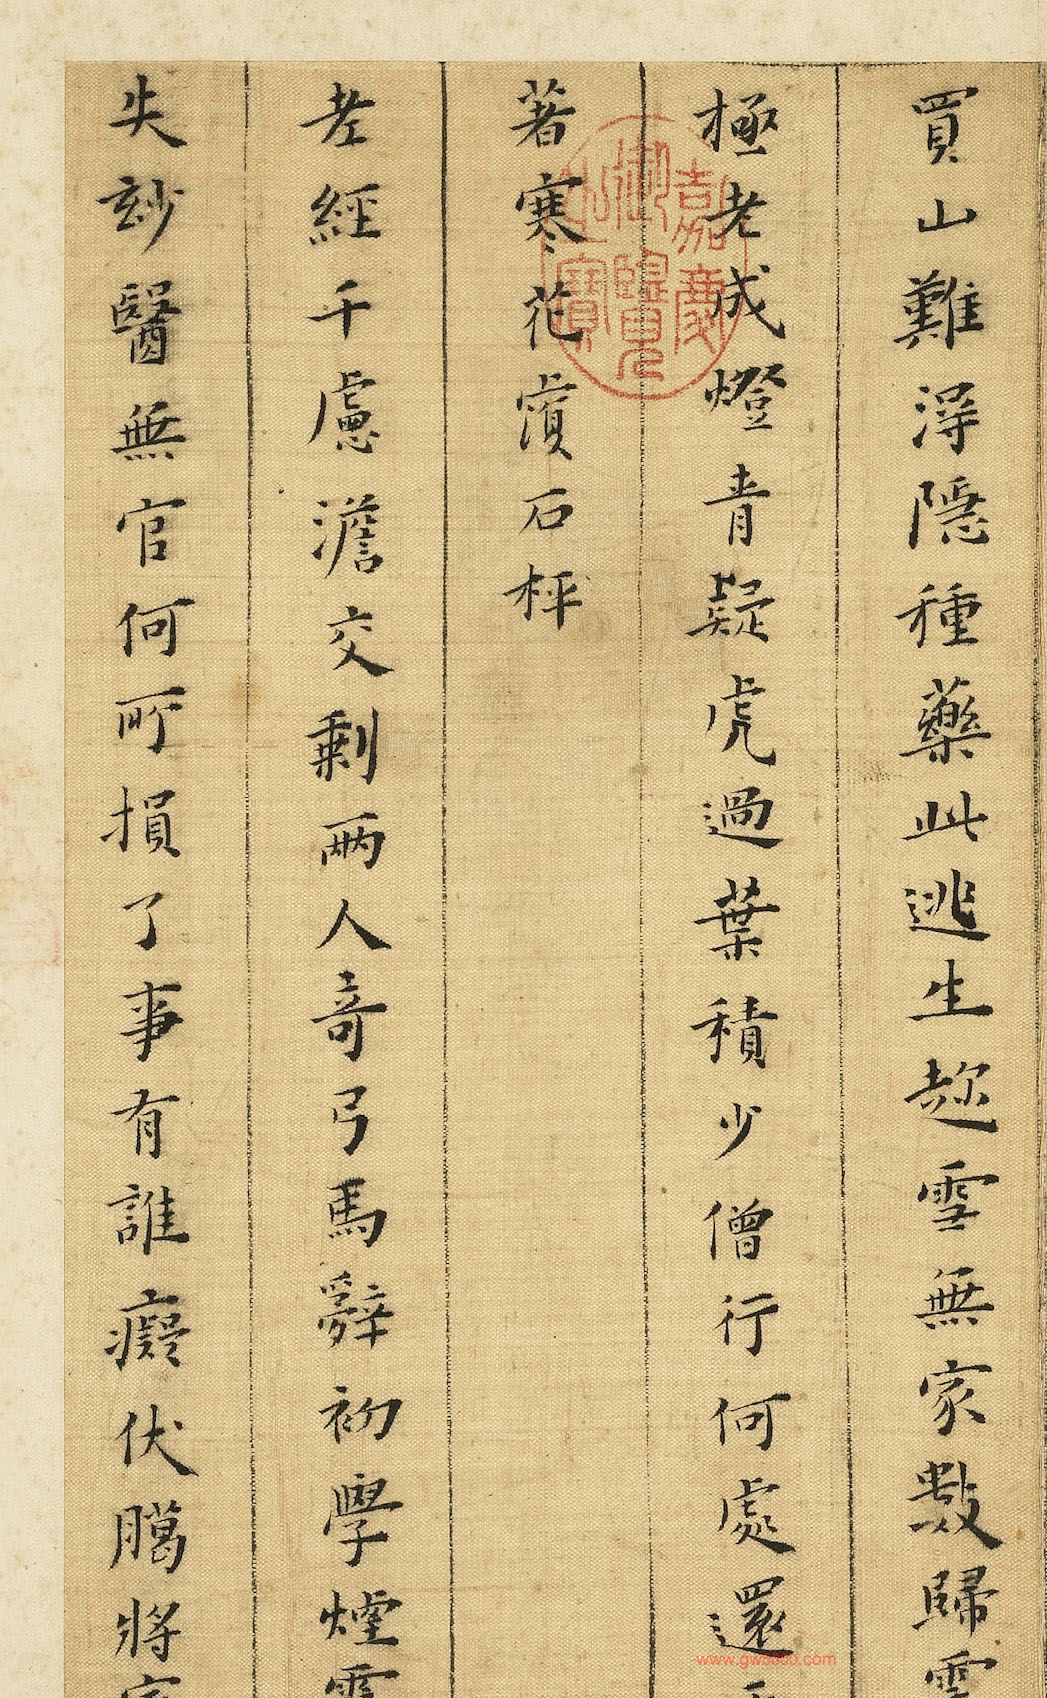 買山難淂隱種藥此逃生趂雪無家數歸雲
極老成燈青疑虎過葉積少僧行何處還
著寒花瀆石枰
老經千慮澹交剩兩人奇弓馬辭初學煙雲
失玅醫無官何所損了事有誰癡伏臈將
嘉慶御覽之寶
www.gw5000.com